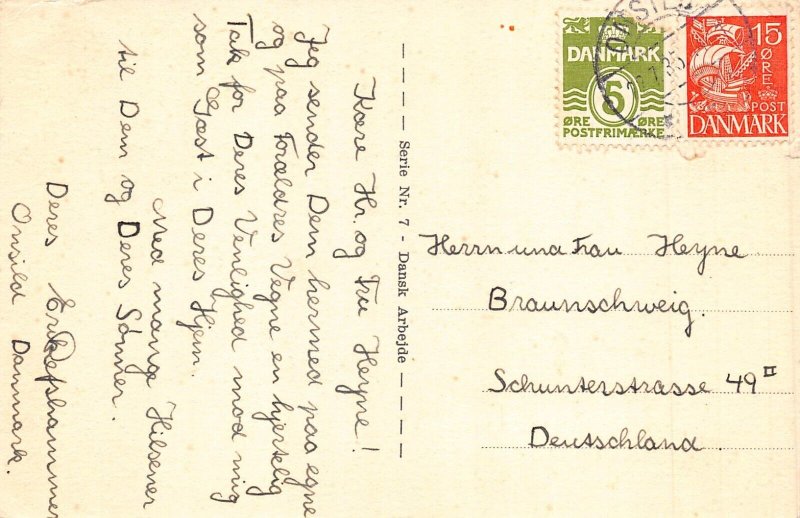 Kære Hr. og Fru Heyne!
Jeg sender Dem hermed paa egne
og paa Forældres Vegne en hjertelig
Tak for Deres Venlighed mod mig
som Gæst i Deres Hjem.
Med mange Hilsener
til Dem og Deres Sønner.
Deres
Onsild Danmark.
Serie Nr. 7 - Dansk Arbejde
DANMARK
5
ØRE ØRE
POSTFRIMÆRKE
15
ØRE
POST
DANMARK
Herrn und Frau Heyne
Braunschweig.
Schunterstrasse 49 II
Deutschland.